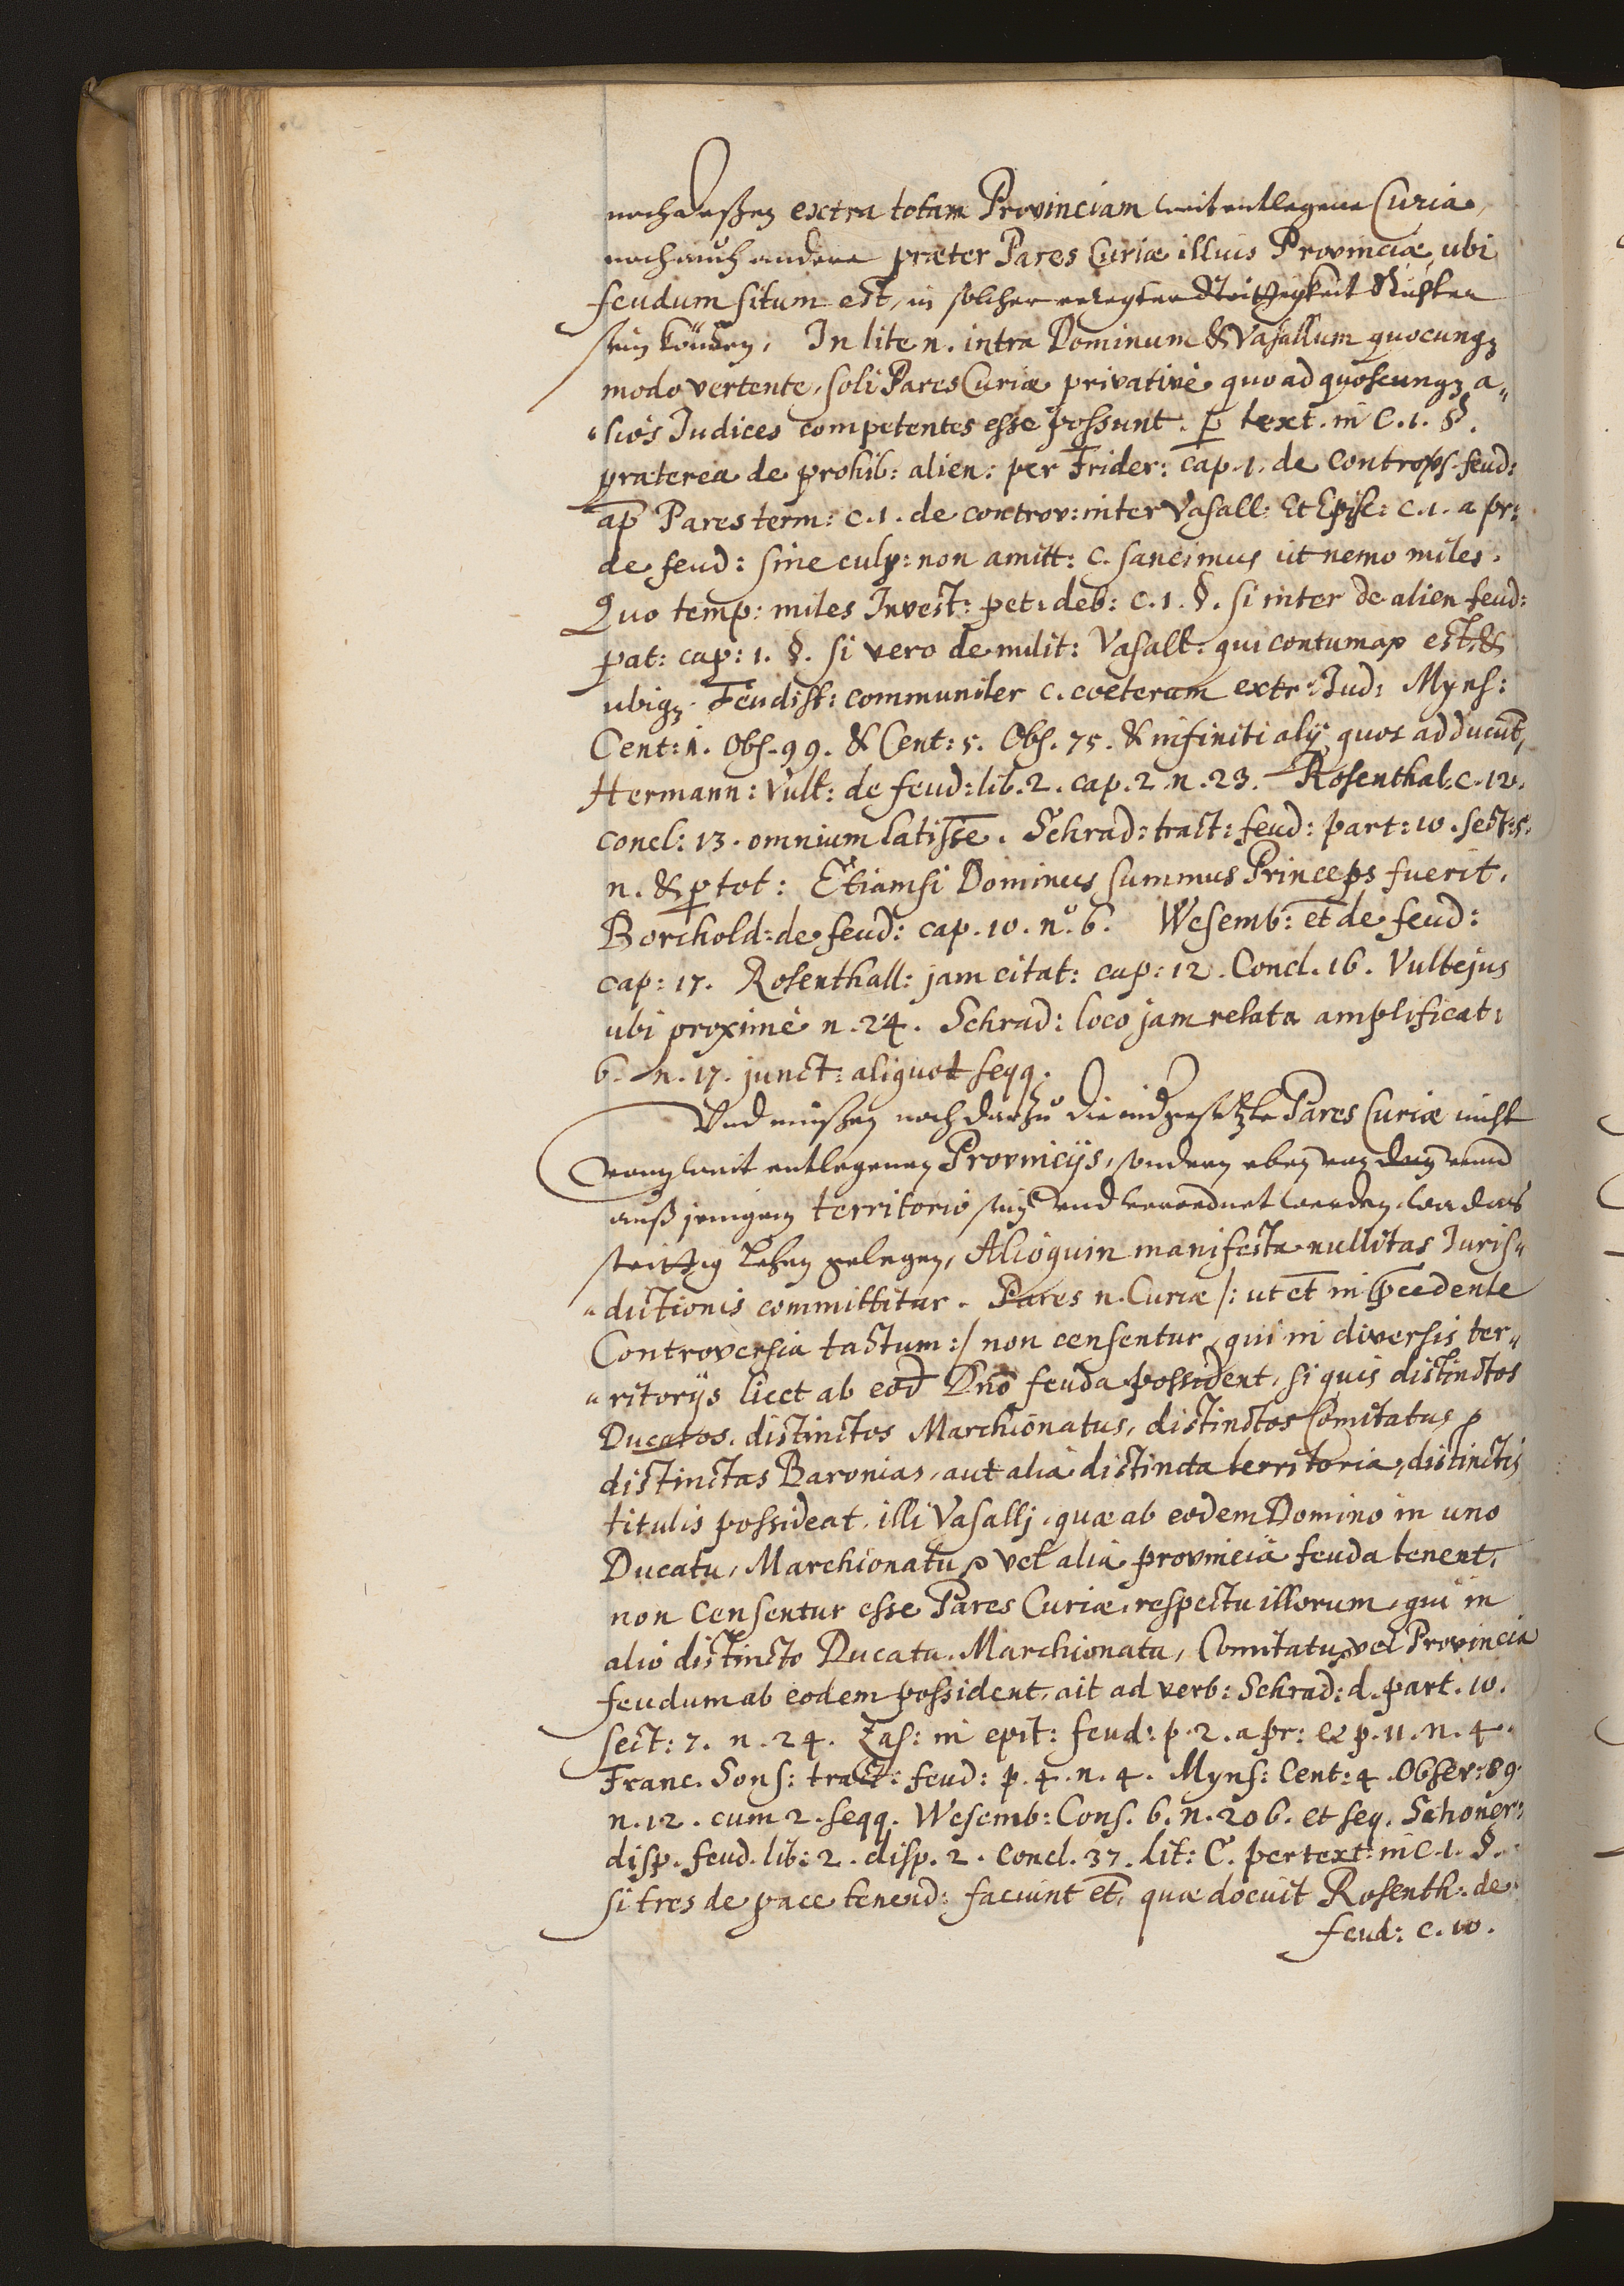 noch deßen extra totam Provinciam weitentlegene Curia,
noch auch andere præter Pares Curiæ illius Provinciæ, ubi
feudum situm est, in solcher erregter Strittigkeit Richter
sein können, In lite n. intra Dominum & Vasallum quocunqz
modo vertente, soli Pares Curiæ privative quo ad quoscunqz a„
„lios Iudices competentes esse possunt. p text. in C. 1. §.
præterea de prohib: alien: per Frider: cap. 1. de controvs. feud:
ap Pares term: c. 1. de controv: inter Vasall: Et Episc: c. 1. a pr:
de feud: sine culp: non amitt: c. sancimus ut nemo miles.
Quo temp: miles Invest: pet: deb: c. 1. §. si inter de alien feud:
pat: cap: 1. §. si vero de milit: Vasall: qui contumax est, &
ubiqz Feudist: communiter c. cœteram extr: Iud: Myns:
Cent: 1. Obs. 99. & Cent: 5. Obs. 75. & infiniti alij, quos adducunt,
Hermann: Vult: de feud: lib. 2. cap. 2. n. 23. Rosenthal. c. 12.
concl: 13. omnium latisse. Schrad: tract: feud: part: 10. sect: 5.
n. & p tot: Etiamsi Dominus summus Princeps fuerit.
Borchold: de feud: cap. 10. no. 6. Wesemb: et de feud:
cap: 17. Rosenthall: jam citat: cap: 12. Concl. 16. Vultejus
ubi proximè n. 24. Schrad: loco jam relata amplificat:
6. n. 17. junct: aliquot seqq.
Und müßen noch darzu die nidgesetzte Pares Curiæ nicht
von weit entlegenen Provincijs, sondern eben von dem und
auß jenigem territorio sein und verordnet werden, wo das
strittig Lehen gelegen, Alioquin manifesta nullitas Iuris„
„dictionis committitur. Pares n. Curiæ /: ut et in pcedente
Controversia tactum :/ non censentur, qui in diversis ter„
„ritorijs licet ab eod Dno feuda possident, si quis distinctos
Ducatos, distinctos Marchionatus, distinctos Comitatus,
distinctas Baronias, aut alia distincta territoria, distinctis
titulis possideat, illi Vasallj, quæ ab eodem Domino in uno
Ducatu, Marchionatu, vel alia provincia feuda tenent,
non censentur esse Pares Curiæ, respectu illorum, qui in
alio distincto Ducatu, Marchionatu, Comitatu vel Provincia
feudum ab eodem possident, ait ad verb: Schrad: d. part. 10.
sect: 7. n. 24. Zas: in epit: feud: p. 2. a pr: & p. 11. n. 4.
Franc. Sons: tract: feud: p. 4. n. 4. Myns: Cent: 4. Obser: 89.
n. 12. cum 2. seqq. Wesemb: Cons. 6. n. 206. et seq. Schoner:
disp. feud. lib: 2. disp. 2. concl. 37. lit: C. per text: in C. 1. §.
si tres de pace tenend: faciunt et, quæ docuit Rosenth: de
feud: c. 10.